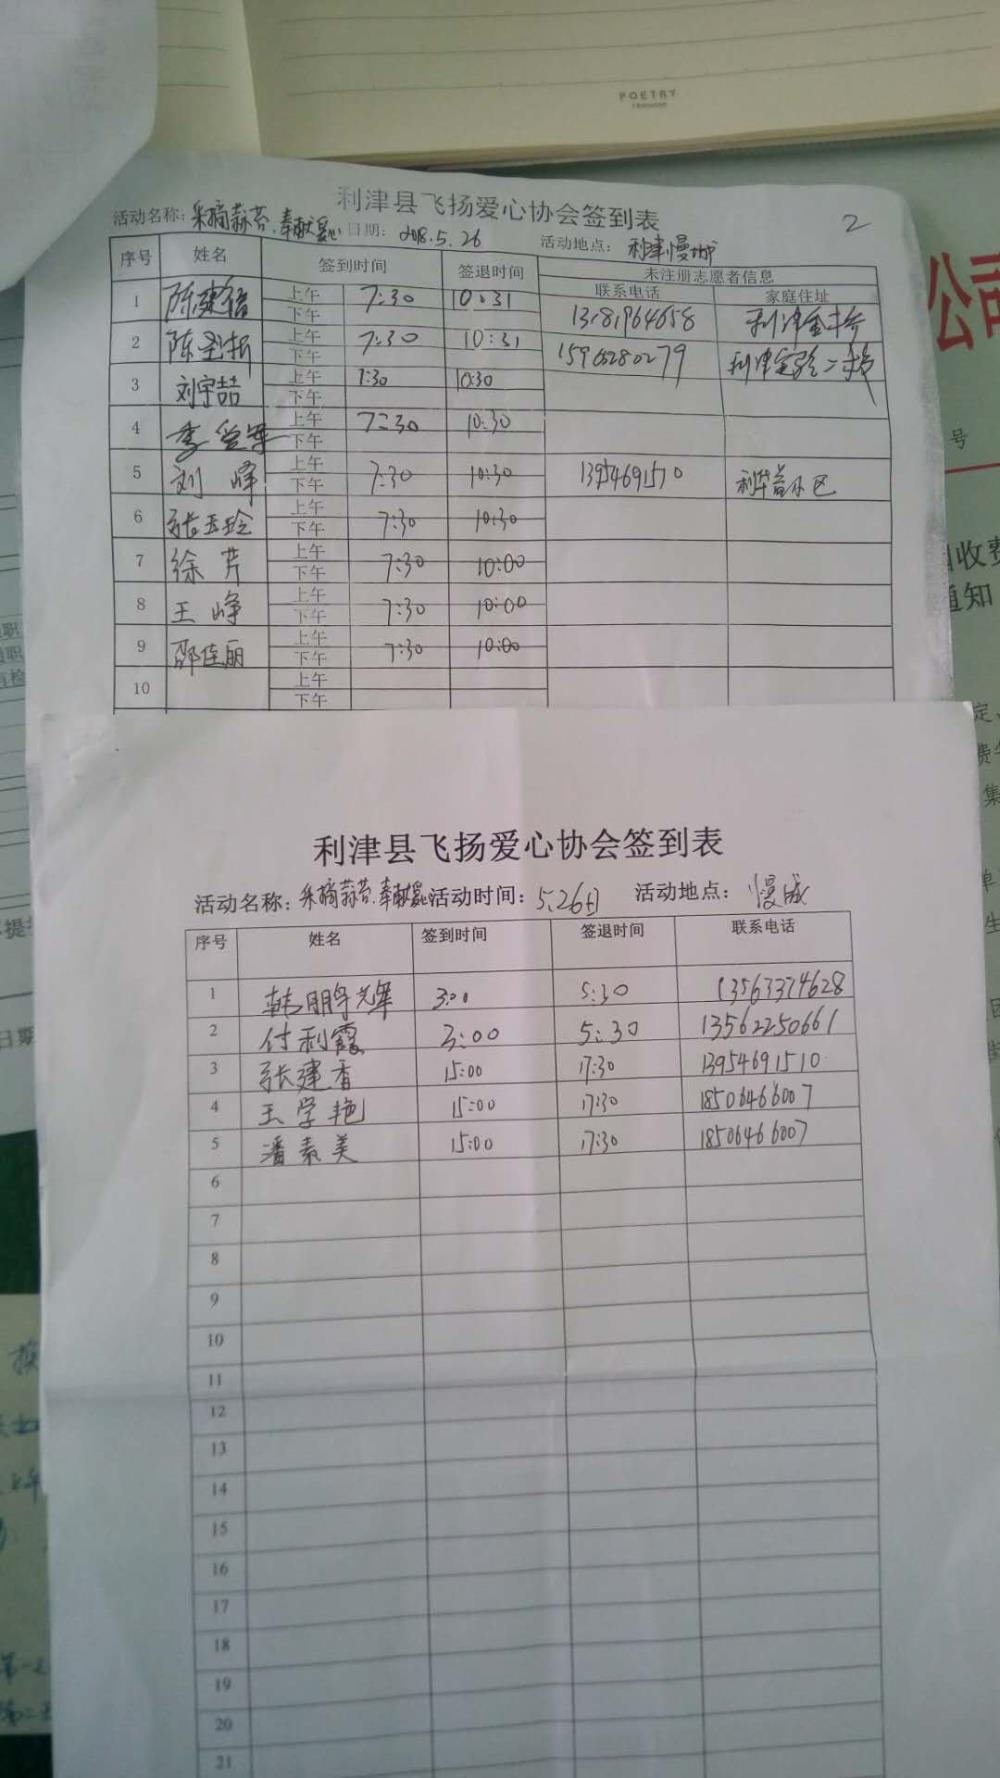 POETRY
利津县飞扬爱心协会签到表
2
活动名称: 采摘蒜苔.奉献爱心 日期: 2018.5.26 活动地点: 利津慢城
序号 姓名 签到时间 签退时间 未注册志愿者信息
联系电话 家庭住址
1 上午 7:30 10:31
下午 利津
2 上午 7:30 10:31
下午 利津实验二校
3 刘宇喆 上午 7:30 10:30
下午
4 上午 7:30 10:30
下午
5 刘峰 上午 7:30 10:30 13954691510 小区
下午
6 张玉玲 上午
下午 7:30 10:30
7 徐芹 上午
下午 7:30 10:00
8 王峥 上午
下午 7:30 10:00
9 邵佳丽 上午
下午 7:30 10:00
10 上午
下午
利津县飞扬爱心协会签到表
活动名称: 采摘蒜苔.奉献爱心 活动时间: 5.26日 活动地点: 慢城
序号 姓名 签到时间 签退时间 联系电话
1 3:00 5:30 13563374628
2 付利霞 3:00 5:30 13562250661
3 张建香 15:00 17:30 13954691510
4 王学艳 15:00 17:30 18506466007
5 潘素美 15:00 17:30 18506466007
6
7
8
9
10
11
12
13
14
15
16
17
18
19
20
21
公司
号
收费
通知